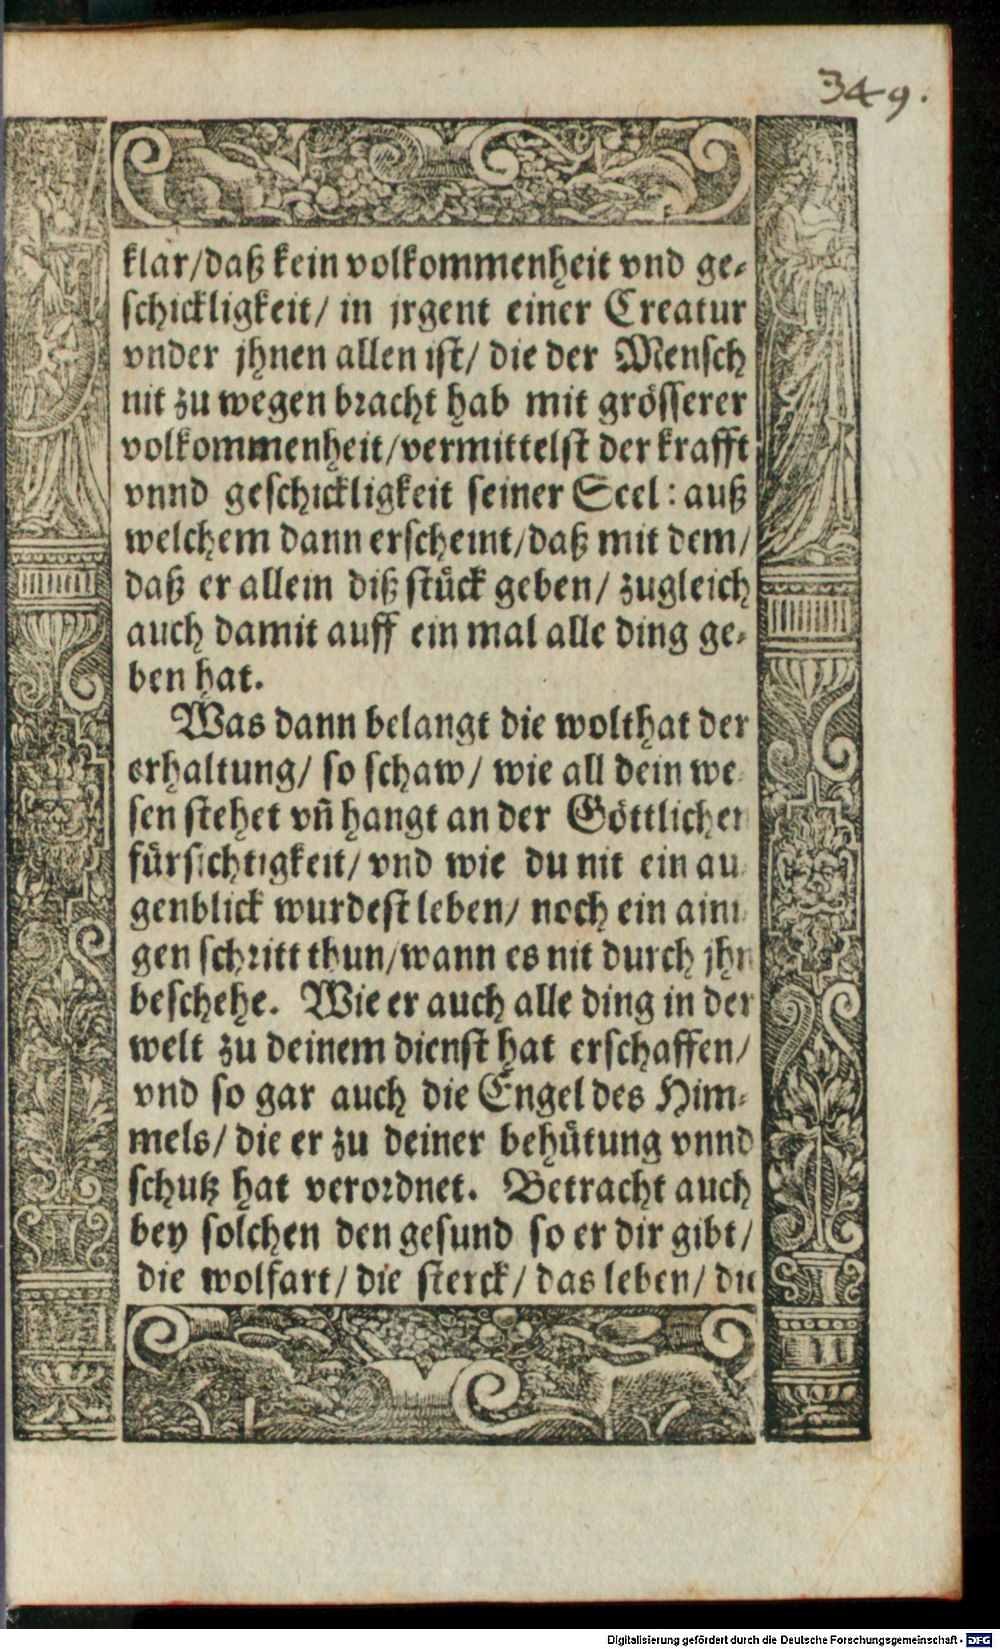 349.
klar/daß kein volkommenheit vnd ge-
schickligkeit/ in jrgent einer Creatur
vnder jhnen allen ist/ die der Mensch
nit zu wegen bracht hab mit grösserer
volkommenheit/vermittelst der krafft
vnnd geschickligkeit seiner Seel: auß
welchem dann erscheint/daß mit dem/
daß er allein diß stück geben/ zugleich
auch damit auff ein mal alle ding ge-
ben hat.
Was dann belangt die wolthat der
erhaltung/ so schaw/ wie all dein we-
sen stehet vñ hangt an der Göttlichen
fürsichtigkeit/ vnd wie du nit ein au-
genblick wurdest leben/ noch ein aini-
gen schritt thun/wann es nit durch jhn
beschehe. Wie er auch alle ding in der
welt zu deinem dienst hat erschaffen/
vnd so gar auch die Engel des Him-
mels/ die er zu deiner behütung vnnd
schutz hat verordnet. Betracht auch
bey solchen den gesund so er dir gibt/
die wolfart/ die sterck/ das leben/ die
Digitalisierung gefördert durch die Deutsche Forschungsgemeinschaft - DFG